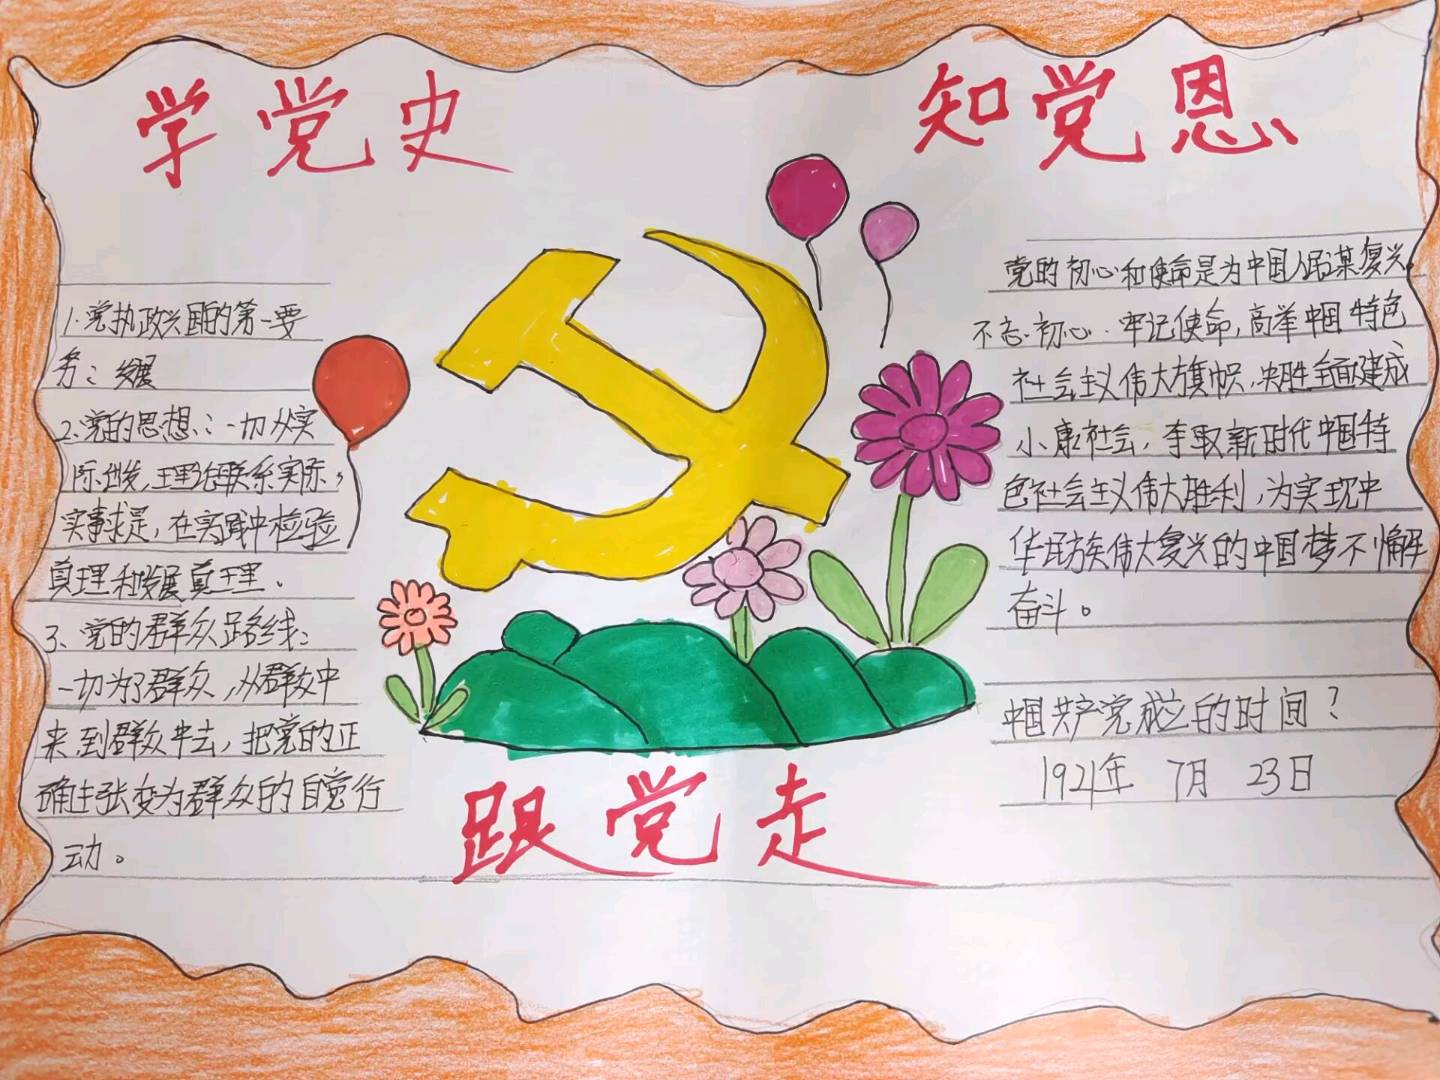 学党史
知党恩
1.党执政兴国的第一要
务：发展
2.党的思想：一切从实
际出发,理论联系实际,
实事求是，在实践中检验
真理和发展真理.
3、党的群众路线：
一切为了群众，从群众中
来到群众中去，把党的正
确主张变为群众的自觉行
动。
党的初心和使命是为中国人民谋复兴.
不忘初心.牢记使命，高举中国特色
社会主义伟大旗帜,决胜全面建成
小康社会，夺取新时代中国特
色社会主义伟大胜利，为实现中
华民族伟大复兴的中国梦不懈
奋斗。
中国共产党成立的时间？
1921年 7月 23日
跟党走